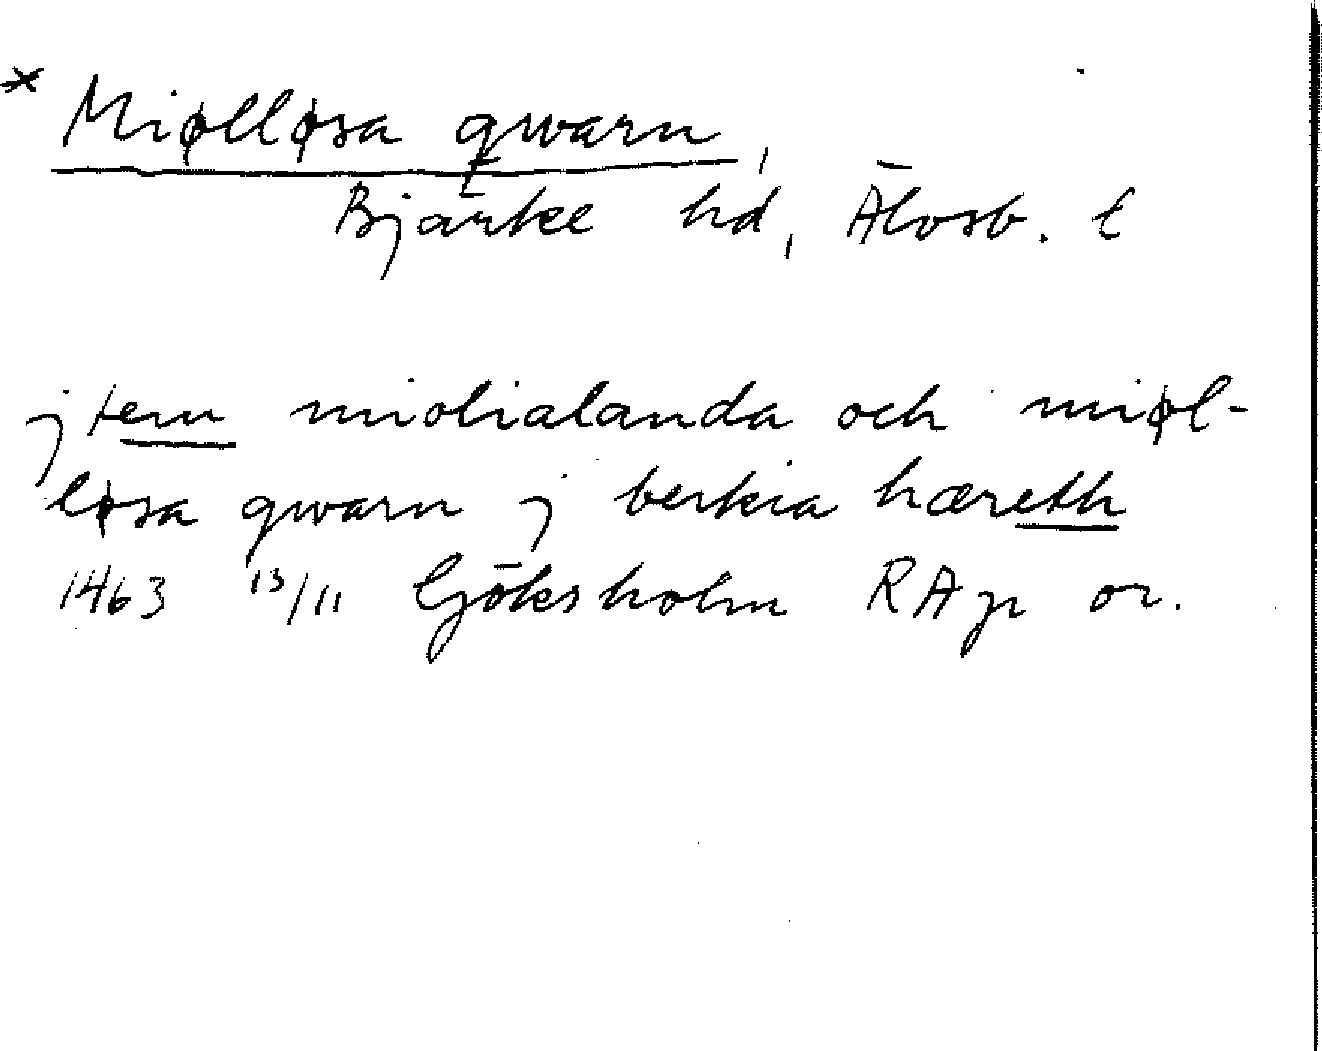 * Miølløsa qwarn,
Bjärke hd, Älvsb. l
jtem miolialanda och miøl-
løsa qwarn j berkia hæreth
1463 13/11 Göksholm RAp or.